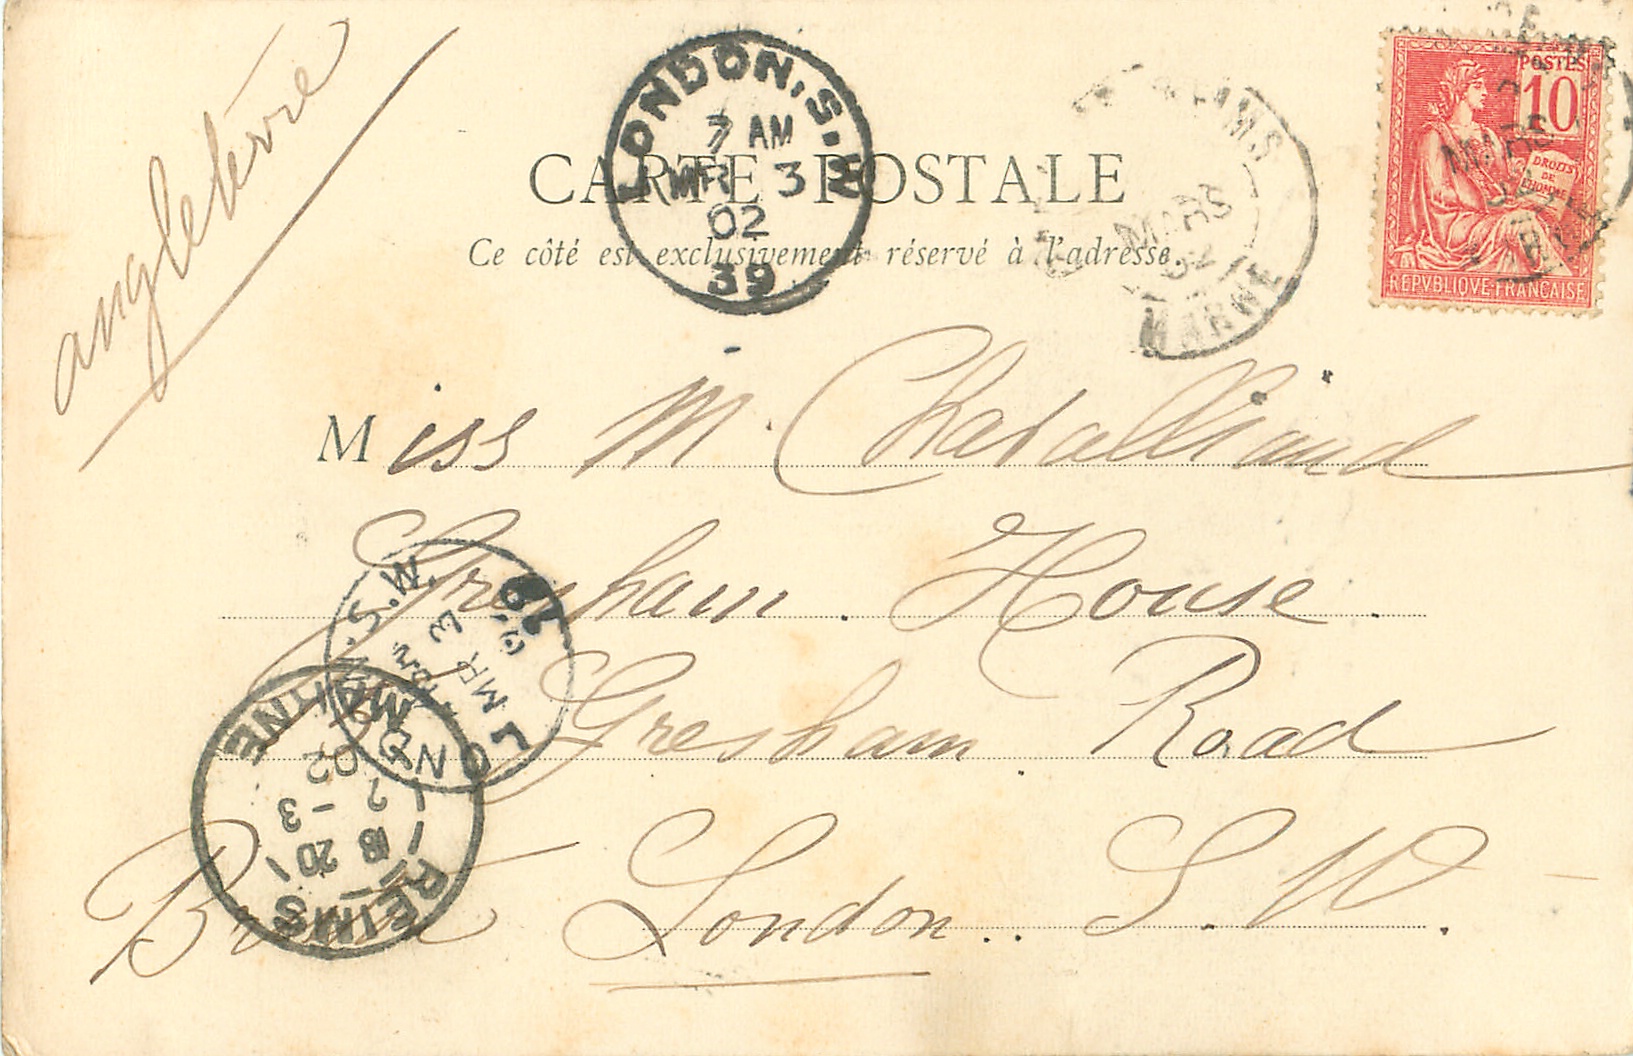 angleterre
LONDON.S.W
7 AM
MR 3
02
39
CARTE POSTALE
Ce côté est exclusivement réservé à l'adresse.
REIMS
MARS
02
MARNE
POSTES
10
DROITS
DE
L'HOMME
REPVBLIQVE FRANÇAISE
MARS
02
Miss M. Chevalliaud
Gresham House.
Gresham Road
Brixton London.. S.W.
LONDON.S.W.
MR 3
02
REIMS
MARNE
18 20
2 -3
02